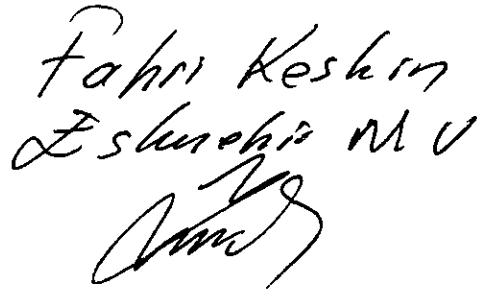 Fahri Keskin
Eskişehir M V